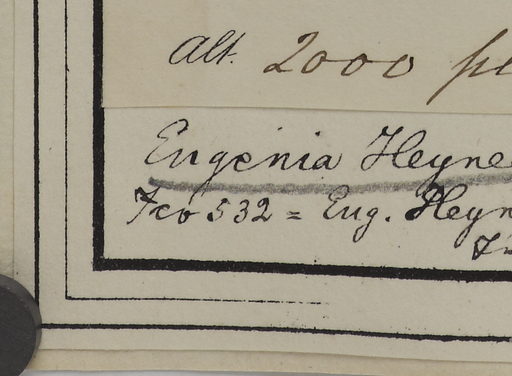 Alt. 2000
Eugenia Heyne
532 = Eug. Heyn